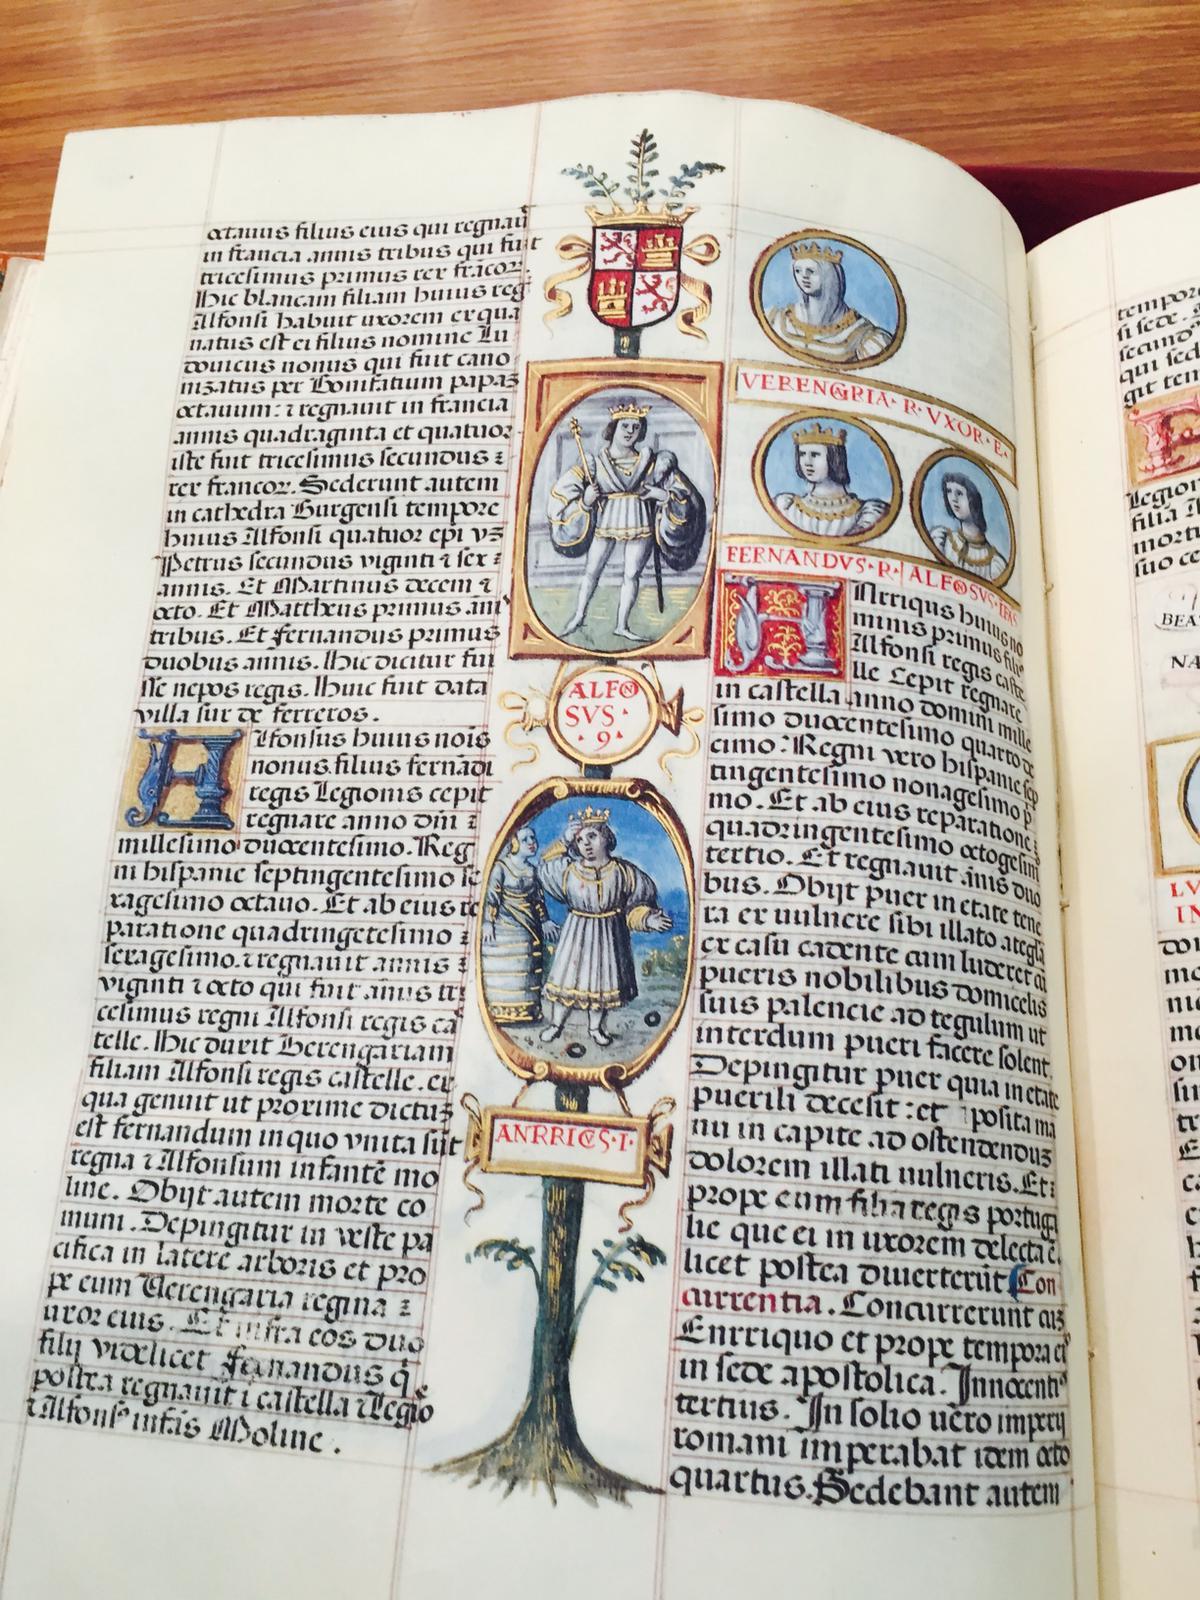 octauus filius eius qui regnaũ
in francia annis tribus qui fuit
tricesimus primus rex frãcoꝝ.
Hic blancam filiam huius reg
Alfonsi habuit uxorem ex qua
natus est ei filius nomine Lu
douicus nonus qui fuit cano
nizatus per Bonifatium papaꝫ
octauum: ⁊ regnauit in francia
annis quadraginta et quatuor
iste fuit tricesimus secundus ⁊
rex francoꝝ. Sederunt autem
in cathedra Burgensi tempore
huius Alfonsi quatuor epi vꝫ
Petrus secundus viginti ⁊ sex ⁊
annis. Et Martinus decem ⁊
octo. Et Mattheus primus ani
tribus. Et fernandus primus
duobus annis. Hic dicitur fui
sse nepos regis. Huic fuit data
villa sur de ferreros.
Alfonsus huius noĩs
nonus filius fernãdi
regis Legionis cepit
regnare anno dñi ⁊
millesimo ducentesimo. Reg
ni hispanie septingentesimo se
xagesimo octauo. Et ab eius re
paratione quadringẽtesimo ⁊
sexagesimo. ⁊ regnauit annis ⁊
viginti ⁊ octo qui fuit annus tri
cesimus regni Alfonsi regis cas
telle. Hic duxit Berengariam
filiam Alfonsi regis castelle. ex
qua genuit ut proxime dictuꝫ
est fernandum in quo vnita sũt
regna ⁊ Alfonsum infantẽ mo
line. Obijt autem morte co
muni. Depingitur in veste pa
cifica in latere arboris et pro
pe eum Verengaria regina ⁊
uxor eius. Et infra eos duo
filij videlicet fernandus q̃
postea regnauit ĩ castella ⁊ Legio
⁊ Alfonsꝰ infãs Moline.
ALFONSVS 9
ANRRICVS I.
VERENGARIA R VXOR E.
FERNANDVS R
ALFONSVS IFAS
HArriqus huius no
minis primus filiꝰ
Alfonsi regis caste
lle Cepit regnare
in castella anno domini mille
simo ducentesimo quarto de
cimo: Regni vero hispanie sep
tingentesimo nonagesimo p
mo. Et ab eius reparatione ⁊
quadringentesimo octogesim
tertio. Et regnauit ãnis duo
bus. Obijt puer in etate tene
ra ex uulnere sibi illato a tegla
ex casu cadente cum luderet cũ
pueris nobilibus domicelis
suis palencie ad tegulum ut
interdum pueri facere solent.
Depingitur puer quia in etate
puerili decesit: et posita ma
nu in capite ad ostendenduꝫ
dolorem illati uulneris. Et ⁊
prope eum filia regis portuga
lie que ei in uxorem delecta ẽ.
licet postea diuerterũt Con
currentia. Concurrerunt cuꝫ
Enrriquo et prope tempora eiꝰ
in sede apostolica. Innocentiꝰ
tertius. In solio uero imperij
romani imperabat idem octo
quartus. Sedebant autem